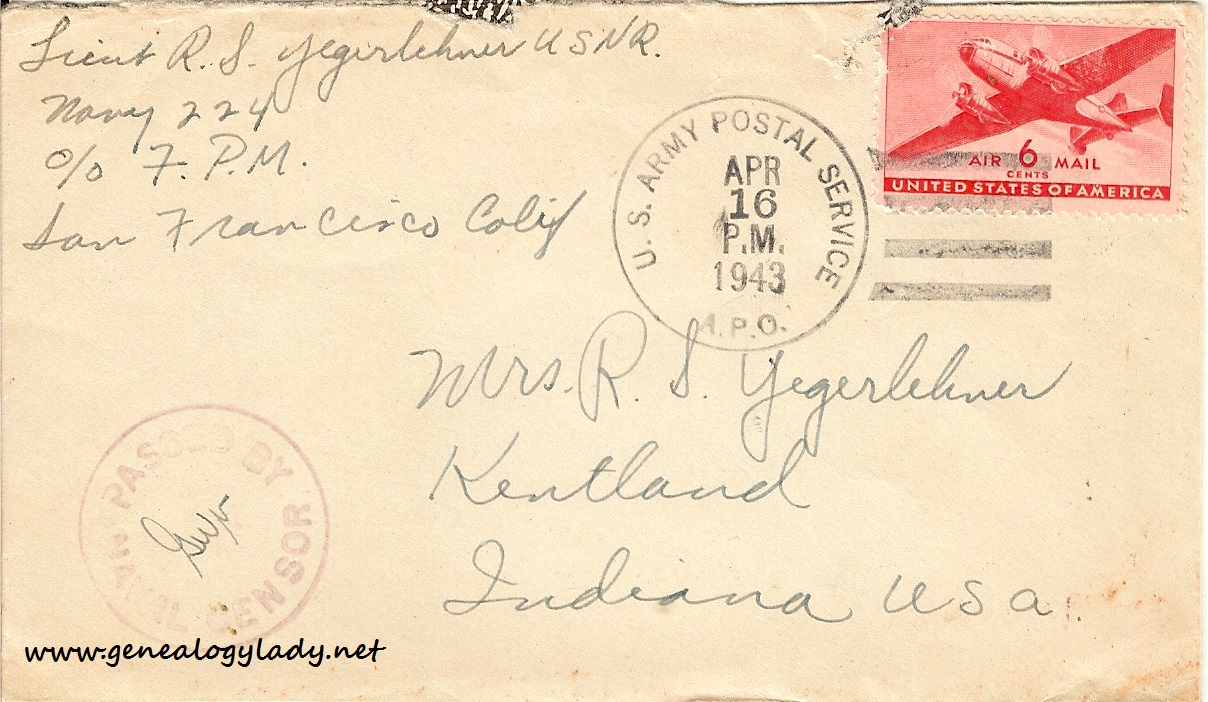 Lieut R. S. Yegerlehner USNR.
Navy 224
c/o F. P.M.
San Francisco Calif
U. S. ARMY POSTAL SERVICE
APR
16
P.M.
1943
A.P.O.
AIR 6 MAIL
CENTS
UNITED STATES OF AMERICA
Mrs. R. S. Yegerlehner
Kentland
Indiana USA
PASSED BY
NAVAL CENSOR
www.genealogylady.net